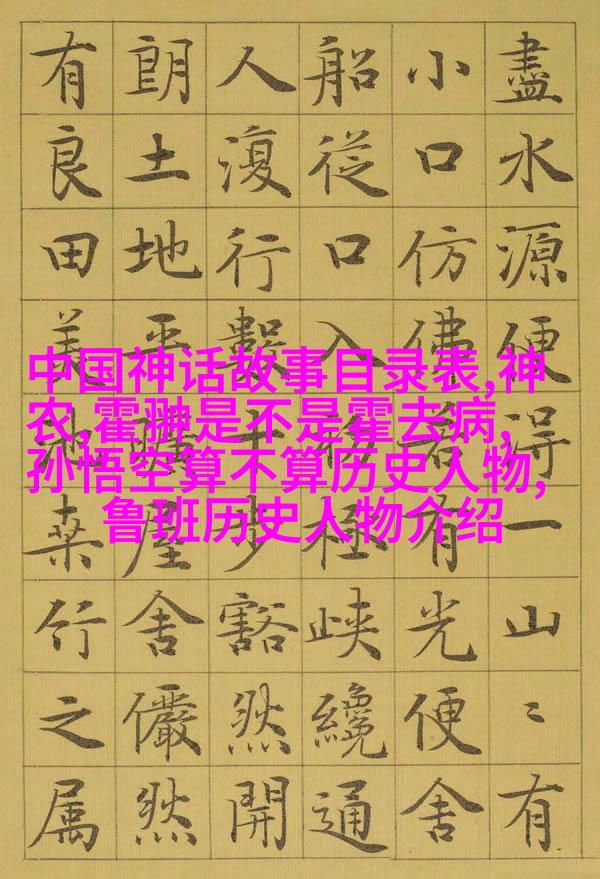 中国神话故事目录表,神
农,霍翀是不是霍去病,
孙悟空算不算历史人物,
鲁班历史人物介绍
盡水源便得一山〻有
小口仿佛若有光便舍
船從口入初極峽纔通
人復行數十步豁然開
朗土地平曠屋舍儼然
有良田美池桑竹之属